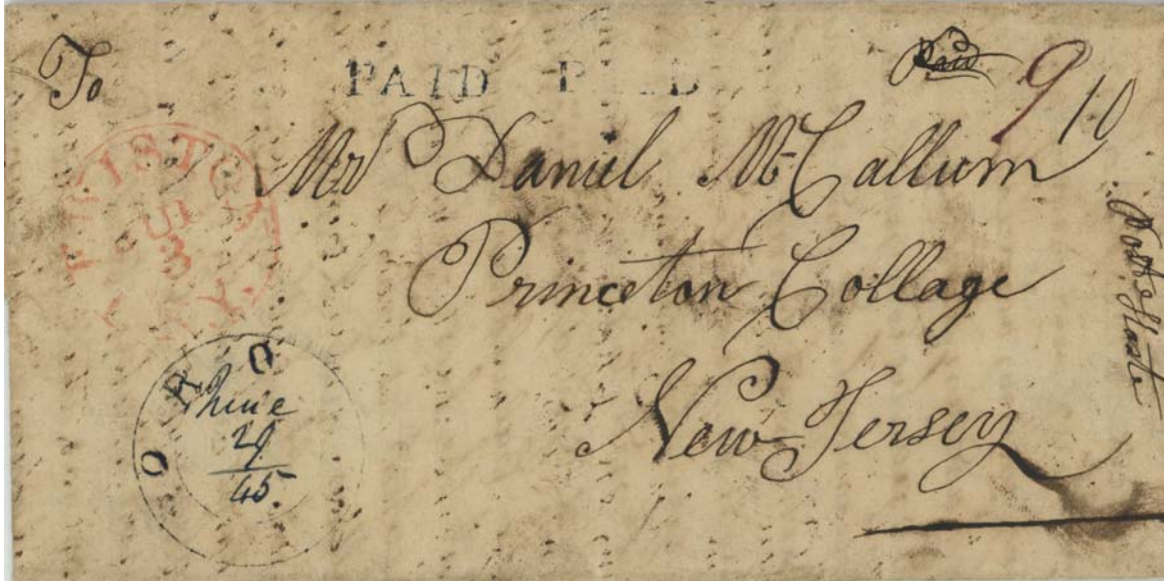 To
PAID PAID
Paid
9 10
Mr Daniel McCallum
Princeton Collage
New Jersey
Post Haste
3
N.Y.
ORO
June
29
45.